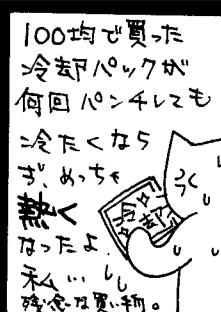 100均で買った
冷却パックが
何回パンチしても
冷たくなら
ず、めっちゃ
熱く
なったよ
私…
残念な買い物。